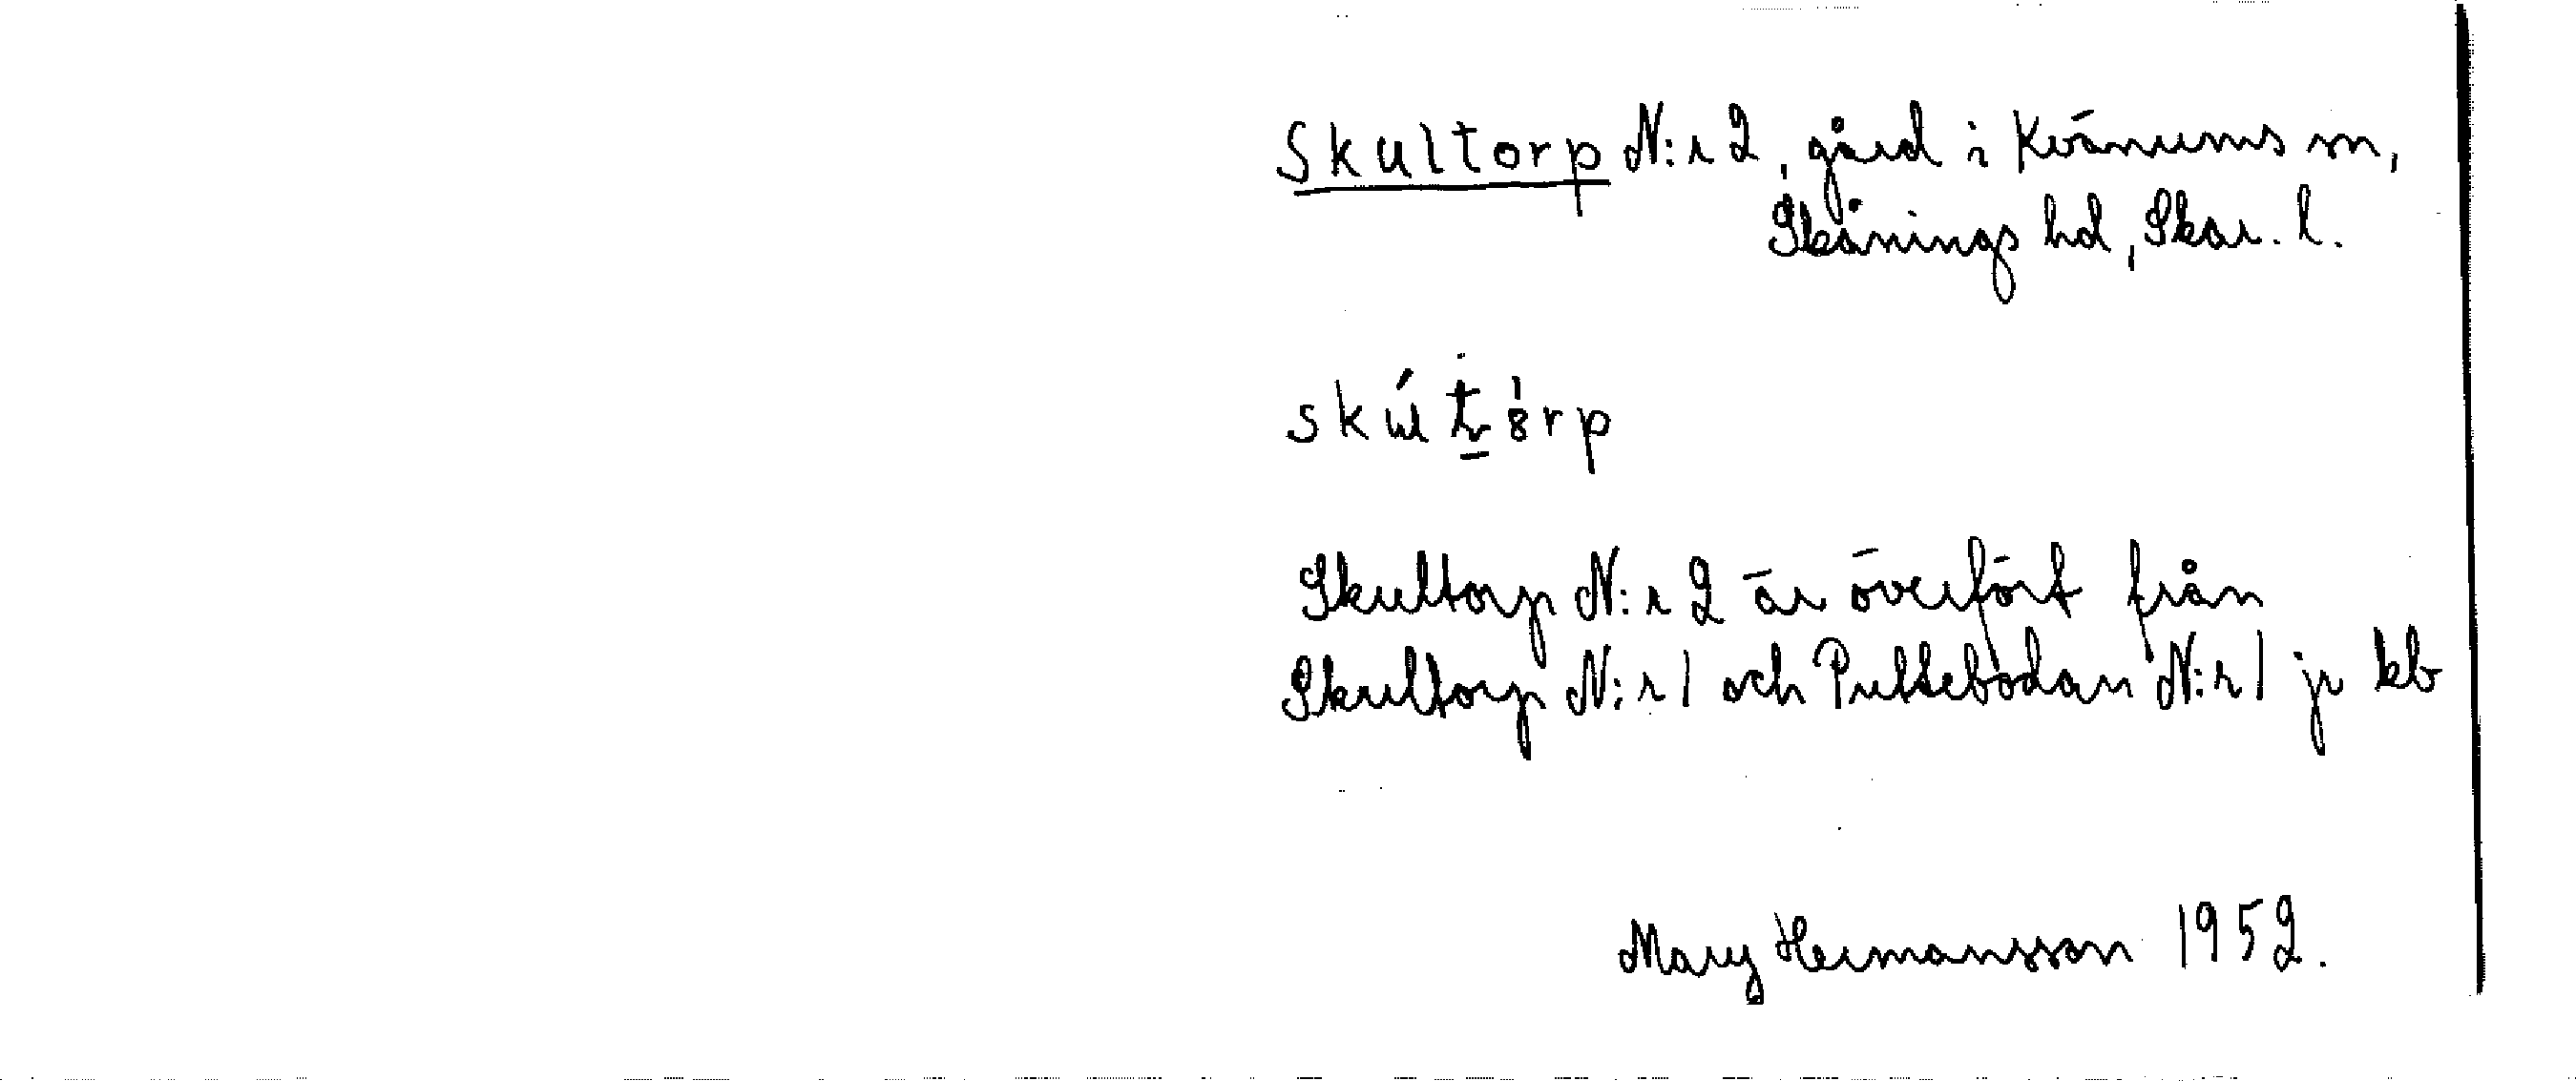 Skultorp N:r 2, gård i Kvänums sn,
Skånings hd, Skar. l.
Skultorp N:r 2 är överfört från
Skultorp N:r 1 och Puttebodan N:r 1 jr kb
Mary Hermansson 1952.